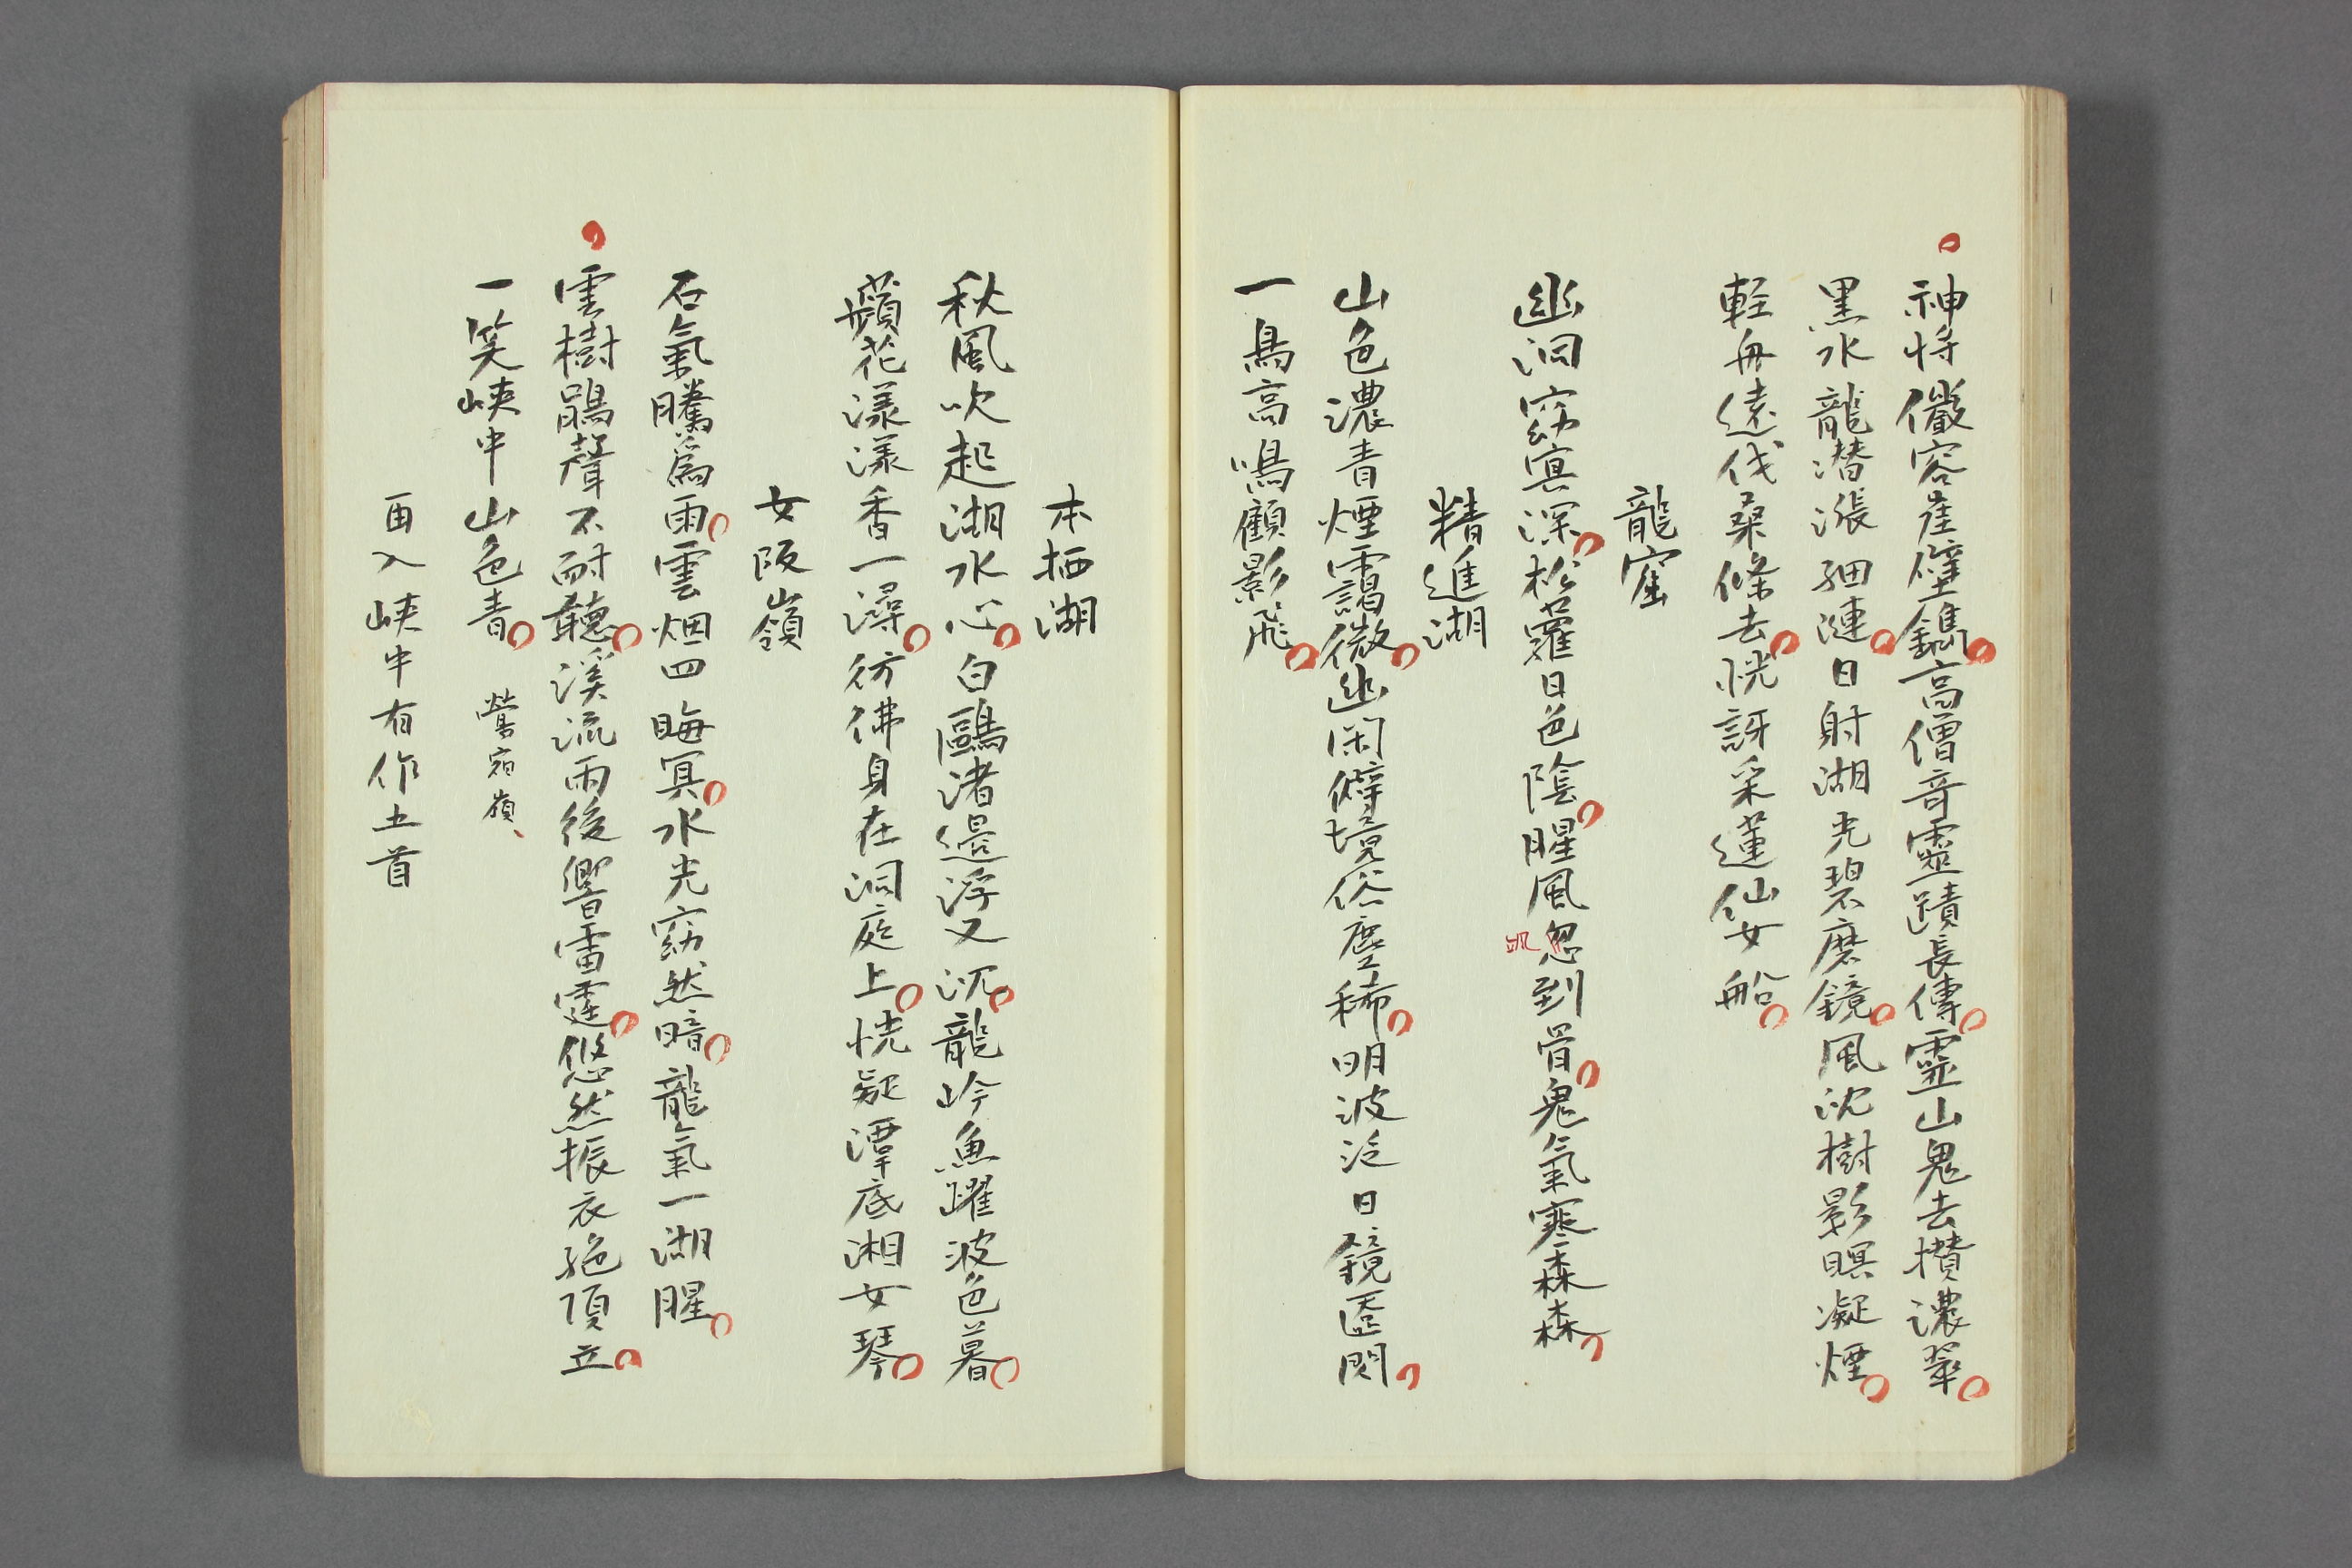 神将儼容崖壁鐫高僧奇靈蹟長傳靈山鬼去攢濃翠
黒水龍潜漲細漣日射湖光碧磨鏡風沈樹影暝凝煙
軽舟遠伐桑條去恍訝采蓮仙女船
龍窟
幽洞窈冥深松蘿日色陰腥風忽到骨鬼氣寒森森
精進湖
山色濃青煙靄微幽閑僻境俗塵稀明波泛日鏡匳閃
一鳥高鳴顧影飛
本栖湖
秋風吹起湖水心白鷗渚邉浮又沉龍吟魚躍波色暮
蘋花漾漾香一潯彷彿身在洞庭上恍疑潭底湘女琴
女阪嶺
石氣騰爲雨雲烟四晦冥水光窈然暗龍氣一湖腥
雲樹鵑聲不耐聽溪流雨後響雷霆悠然振衣絶頂立
一笑峽中山色青 鶯宿嶺
再入峽中有作五首